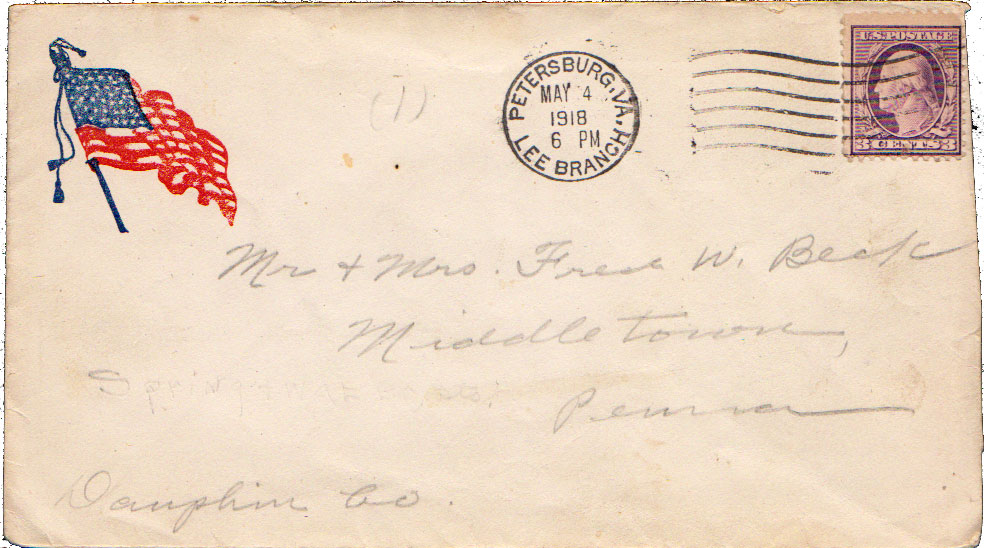 (1)
PETERSBURG, VA.
MAY 4
1918
6 PM
LEE BRANCH
U.S. POSTAGE
3 CENTS 3
Mr + Mrs. Fred W. Beck
Middletown,
Penna
Dauphin Co.